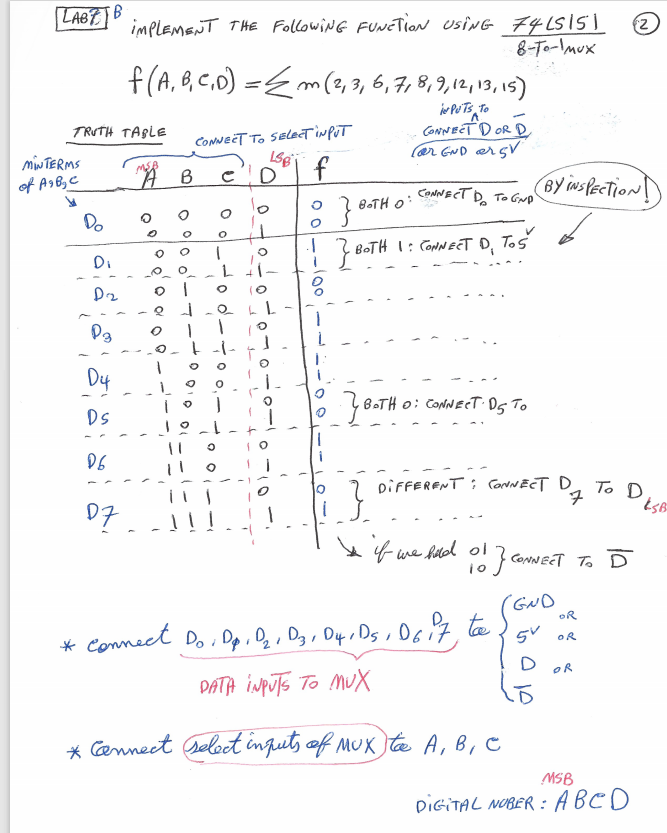 LAB7 B IMPLEMENT THE FOLLOWING FUNCTION USING 74LS151 2
8-TO-1 MUX
f(A, B, C, D) = Σ m(2, 3, 6, 7, 8, 9, 12, 13, 15)
INPUTS TO
TRUTH TABLE CONNECT TO SELECT INPUT CONNECT D OR D̅
(or GND or 5V
MINTERMS
of A, B, C
MSB LSB
A B C D f
BY INSPECTION!
D0 0 0 0 0 0 } BOTH 0: CONNECT D0 TO GND
0 0 0 1 0
D1 0 0 1 0 1 } BOTH 1: CONNECT D1 TO 5V
0 0 1 1 1
D2 0 1 0 0 0
0 1 0 1 0
D3 0 1 1 0 1
0 1 1 1 1
D4 1 0 0 0 1
1 0 0 1 1
D5 1 0 1 0 0 } BOTH 0: CONNECT D5 TO
1 0 1 1 0
D6 1 1 0 0 1
1 1 0 1 1
D7 1 1 1 0 0 } DIFFERENT: CONNECT D7 TO D LSB
1 1 1 1 1
if we had 01
10 } CONNECT TO D̅
* Connect D0, D1, D2, D3, D4, D5, D6, D7 to { GND OR
5V OR
D OR
D̅
DATA INPUTS TO MUX
* Connect select inputs of MUX to A, B, C
MSB
DIGITAL NUBER: A B C D